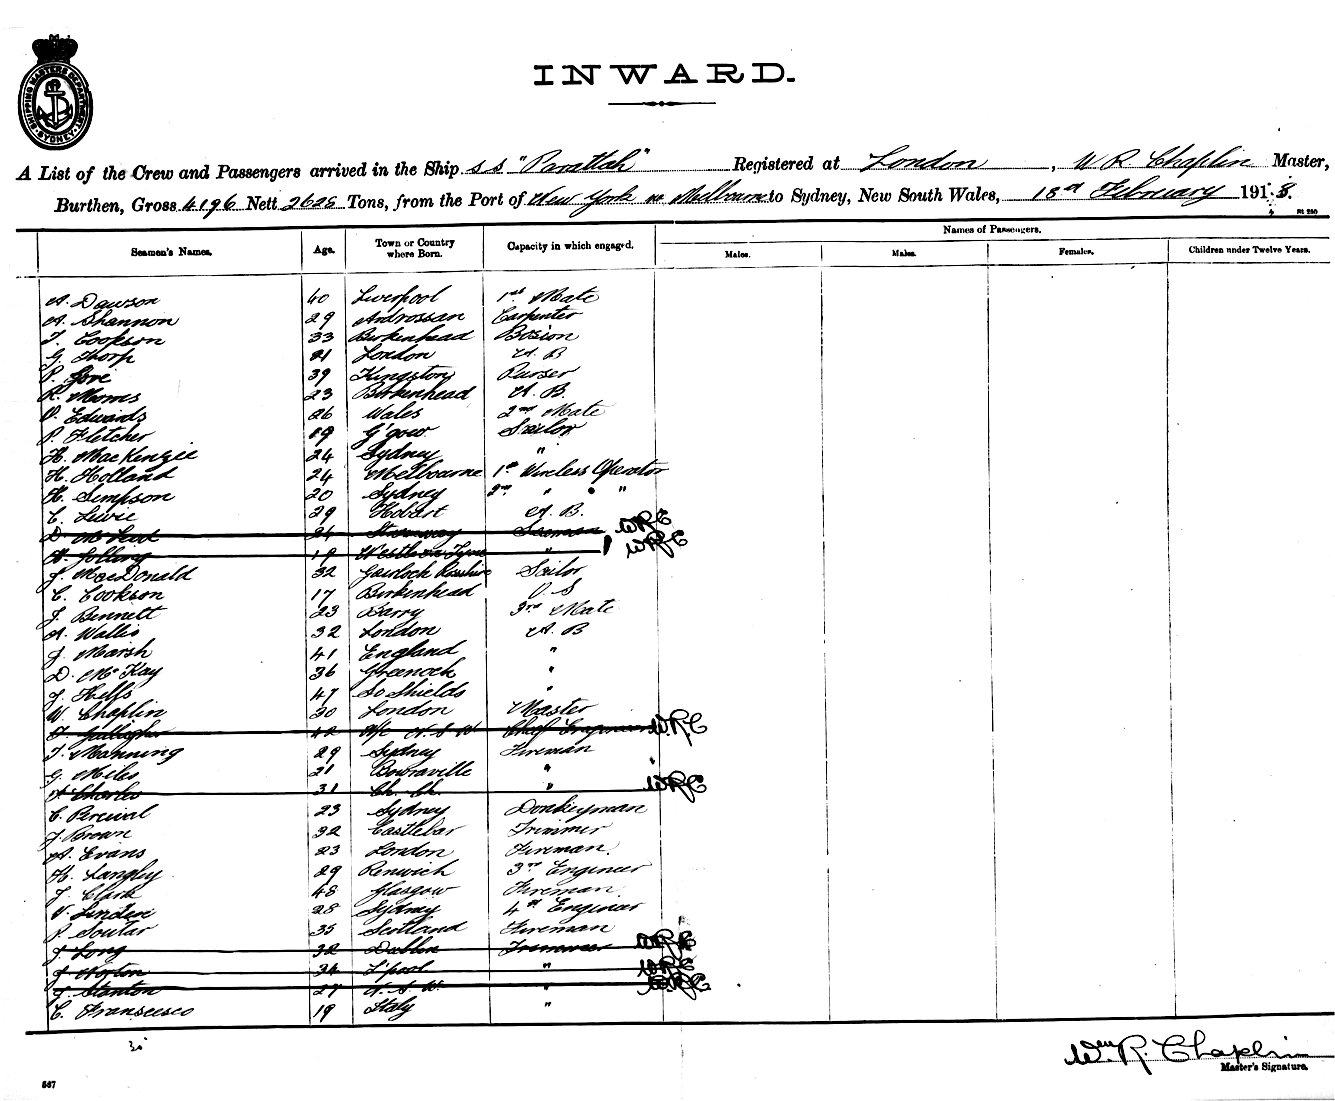 SHIPPING MASTERS DEPARTMENT SYDNEY
INWARD.
A List of the Crew and Passengers arrived in the Ship S.S "Parattah" Registered at London, W R Chaplin Master,
Burthen, Gross 4196 Nett 2625 Tons, from the Port of New York via Melbourne to Sydney, New South Wales, 18th February 1918.
Seamen's Names. Age. Town or Country where Born. Capacity in which engaged. Names of Passengers.
Males. Males. Females. Children under Twelve Years.
A. Dawson 40 Liverpool 1st Mate
A. Shannon 29 Ardrossan Carpenter
T. Cookson 33 Birkenhead Bosion
G. Thorp 21 London A. B
P. Gore 39 Kingston Purser
R. Morris 23 Birkenhead A. B.
D. Edwards 26 Wales 2nd Mate
P. Fletcher 19 G'gow Sailor
H. MacKenzie 24 Sydney "
H. Holland 24 Melbourne 1st Wireless Operator
H. Simpson 20 Sydney 2nd " "
C. Lewis 29 Hobart A. B.
D. McLeod 24 Stornoway Seaman WRC
19 "  WRC
J. MacDonald 32 Gairloch Rosshire Sailor
C. Cookson 17 Birkenhead O S
J. Bennett 23 Barry 3rd Mate
A. Wallis 32 London A. B
J. Marsh 41 England "
D. McKay 36 Greenock "
J. 47 So Shields "
W. Chaplin 30 London Master
F. Gallagher 42 N S W Chief Engineer WRC
T. Manning 29 Sydney Fireman
G. Miles 21 Bowraville "
Charles 31 Ch. Ch. " WRC
C. Percival 23 Sydney Donkeyman
J. Brown 32 Castlebar Trimmer
A. Evans 23 London Fireman.
H. Langley 29 Renwich 3rd Engineer
J. Clark 48 Glasgow Fireman
V. Linden 28 Sydney 4th Engineer
P. Soutar 35 Scotland Fireman
J. Long 32 Dublin Trimmer WRC
J Norton 34 L'pool " WRC
J. Stanton 27 N. S. W. " WRC
C. Franscesco 19 Italy "
Wm R. Chaplin
Master's Signature.
567